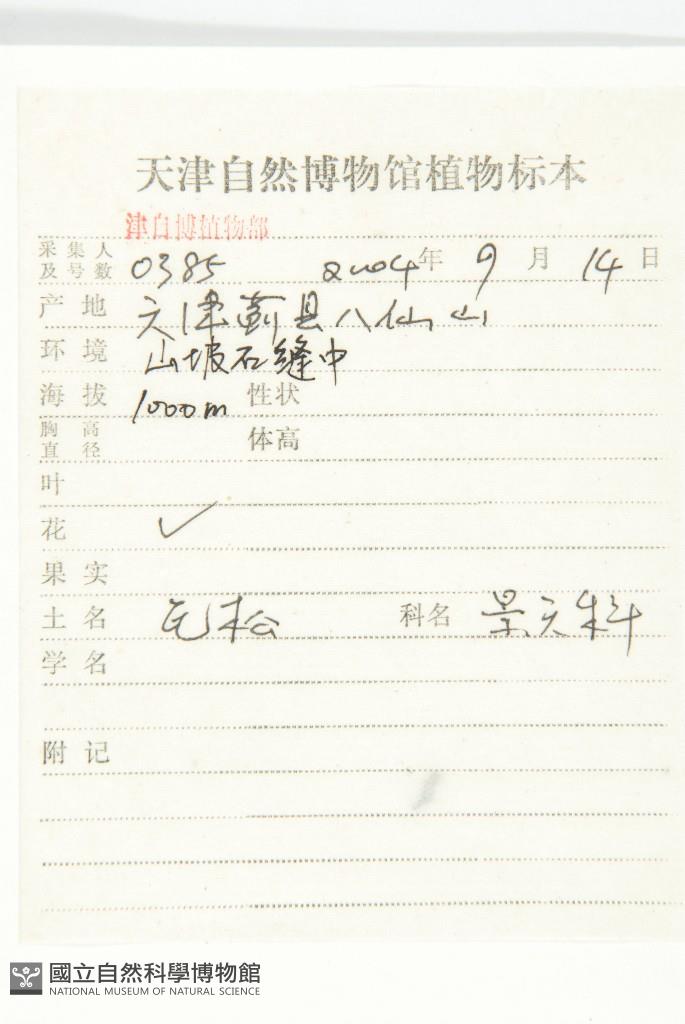 天津自然博物馆植物标本
津自博植物部
采集人及号数 0385 2004年 9月 14日
产地 天津蓟县八仙山
环境 山坡石缝中
海拔 1000m 性状
胸高直径 体高
叶
花 ✓
果实
土名 瓦松 科名 景天科
学名
附记
國立自然科學博物館
NATIONAL MUSEUM OF NATURAL SCIENCE